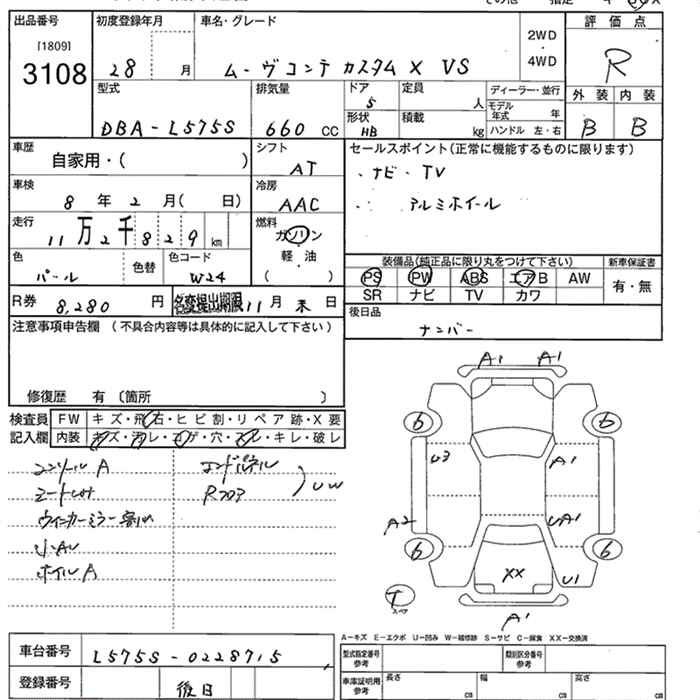 出品番号 初度登録年月 車名・グレード 2WD・4WD 評価点
[1809]
3108 28 月 ムーヴコンテ カスタム X VS R
型式 排気量 ドア 5 定員 人 ディーラー・並行 外装 内装
モデル年式 年
DBA-L575S 660 CC 形状 HB 積載 kg ハンドル 左・右 B B
車歴 自家用・( ) シフト AT セールスポイント(正常に機能するものに限ります)
・ナビ・TV
車検 8年 2月( 日) 冷房 AAC アルミホイール
走行 11万2千829km 燃料 ガソリン・軽油 ( )
色 パール 色替 色コード W24
装備品(純正品に限り丸をつけて下さい) 新車保証書
PS PW ABS エアB AW 有・無
SR ナビ TV カワ
R券 8,280円 名変提出期限 11月末日 後日品
ナンバー
注意事項申告欄 (不具合内容等は具体的に記入して下さい)
修復歴 有〔箇所 〕
検査員記入欄 FW キズ・飛石・ヒビ割・リペア跡・X要
内装 キズ・汚レ・コゲ・穴・スレ・キレ・破レ
コンソールA エンドパネル
R フロア UW
小AU
ホイルA
A1 A1
6 6
U3 A1
A2 UA1
6 6
XX U1
T スペア A1
A-キズ E-エクボ U-凹み W-補修跡 S-サビ C-腐食 XX-交換済
車台番号 L575S-0228715 型式指定番号 参考 類別区分番号 参考
登録番号 後日 車庫証明用 参考 長さ cm 幅 cm 高さ cm